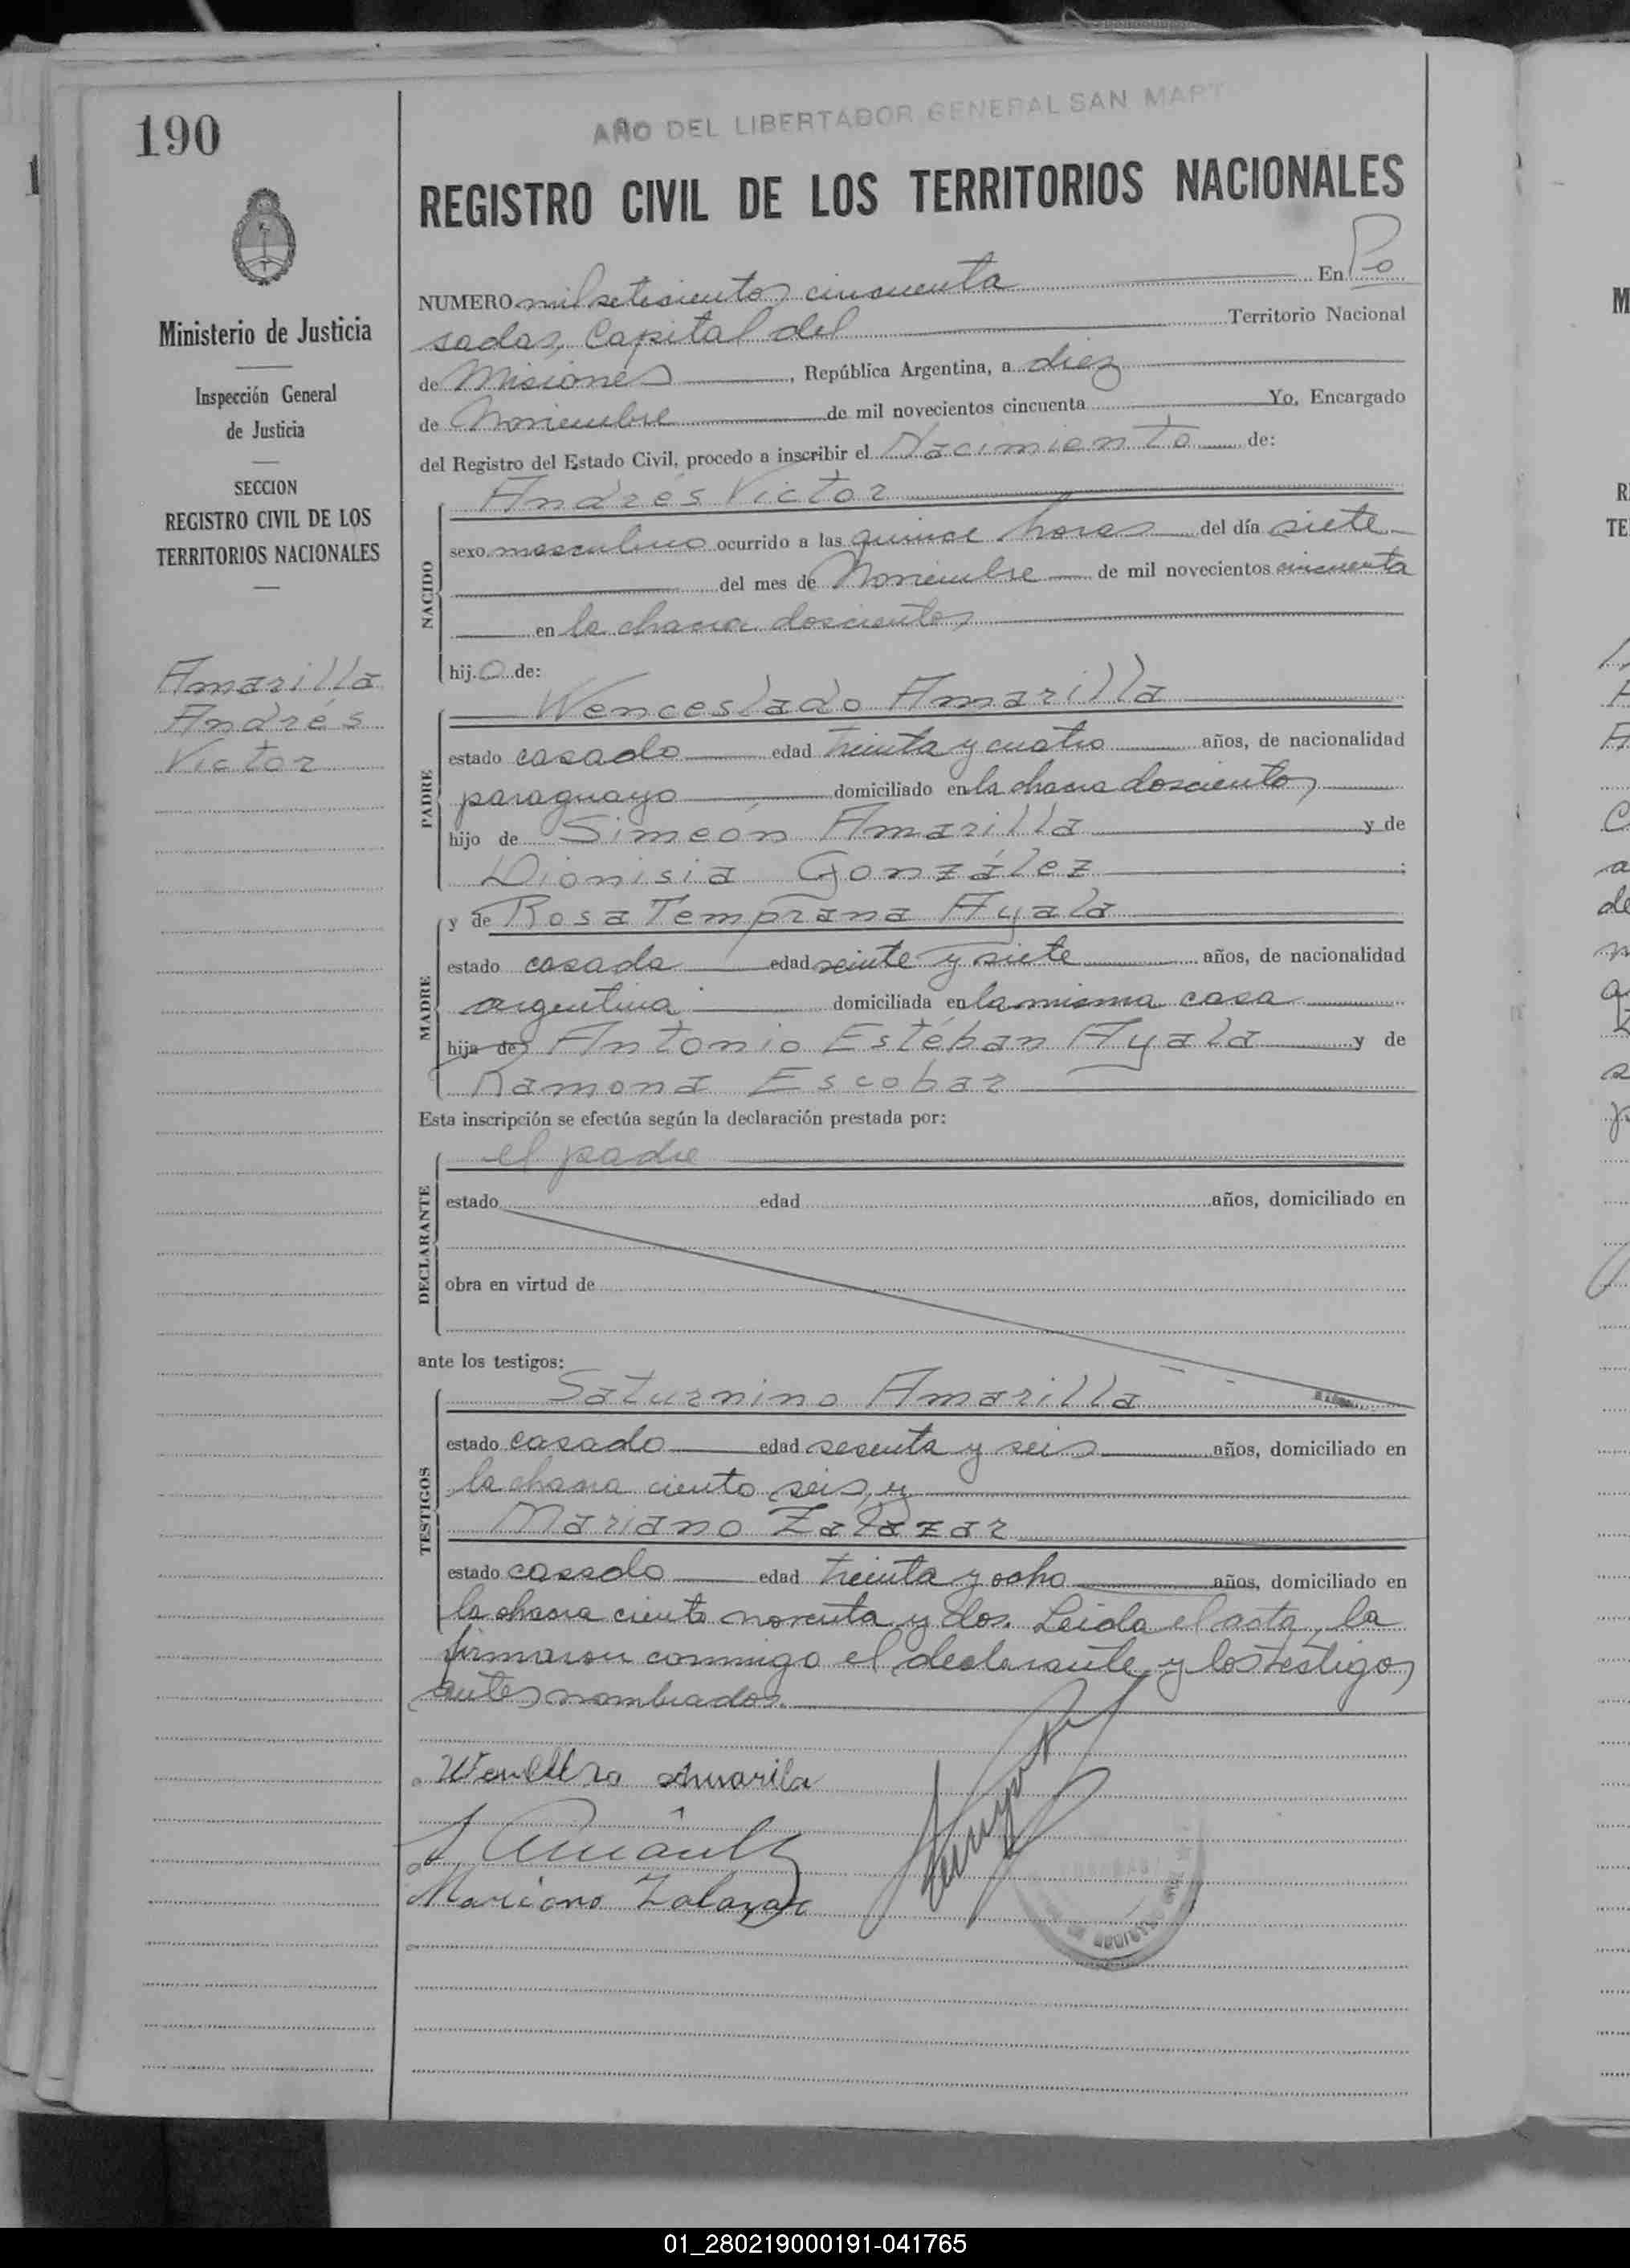 190
AÑO DEL LIBERTADOR GENERAL SAN MART
REGISTRO CIVIL DE LOS TERRITORIOS NACIONALES
Ministerio de Justicia
Inspección General
de Justicia
SECCION
REGISTRO CIVIL DE LOS
TERRITORIOS NACIONALES
Amarilla
Andrés
Victor
NUMERO mil setecientos cincuenta En Po
sadas, Capital del Territorio Nacional
de Misiones, República Argentina, a diez
de Noviembre de mil novecientos cincuenta Yo, Encargado
del Registro del Estado Civil, procedo a inscribir el Nacimiento de:
NACIDO
Andrés Victor
sexo masculino ocurrido a las quince horas del día siete
del mes de Noviembre de mil novecientos cincuenta
en la chacra doscientos
hijo de:
PADRE
Wenceslado Amarilla
estado casado edad treinta y cuatro años, de nacionalidad
paraguayo domiciliado en la chacra doscientos
hijo de Simeón Amarilla y de
Dionisia González ;
MADRE
y de Rosa Temprana Ayala
estado casada edad veinte y siete años, de nacionalidad
argentina domiciliada en la misma casa
hija de Antonio Estéban Ayala y de
Ramona Escobar
Esta inscripción se efectúa según la declaración prestada por:
DECLARANTE
el padre
estado edad años, domiciliado en
obra en virtud de
ante los testigos:
TESTIGOS
Saturnino Amarilla
estado casado edad sesenta y seis años, domiciliado en
la chacra ciento seis, y
Mariano Zalazar
estado casado edad treinta y ocho años, domiciliado en
la chacra ciento noventa y dos. Leida el acta, la
firmaron conmigo el declarante y los testigos
antes nombrados.
Amarila
Mariano Zalazar
01_280219000191-041765